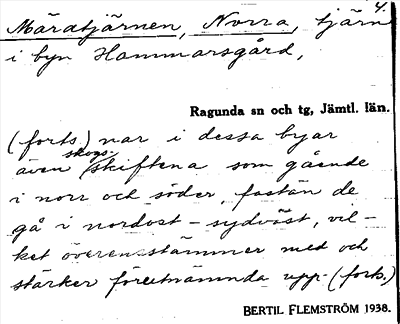 4.
Märatjärnen, Norra, tjärn
i byn Hammarsgård,
Ragunda sn och tg, Jämtl. län.
(forts) nar i dessa byar
även skogs-skiftena som gående
i norr och söder, fastän de
gå i nordost - sydväst, vil-
ket överensstämmer med och
stärker förutnämnda upp- (forts.)
BERTIL FLEMSTRÖM 1938.